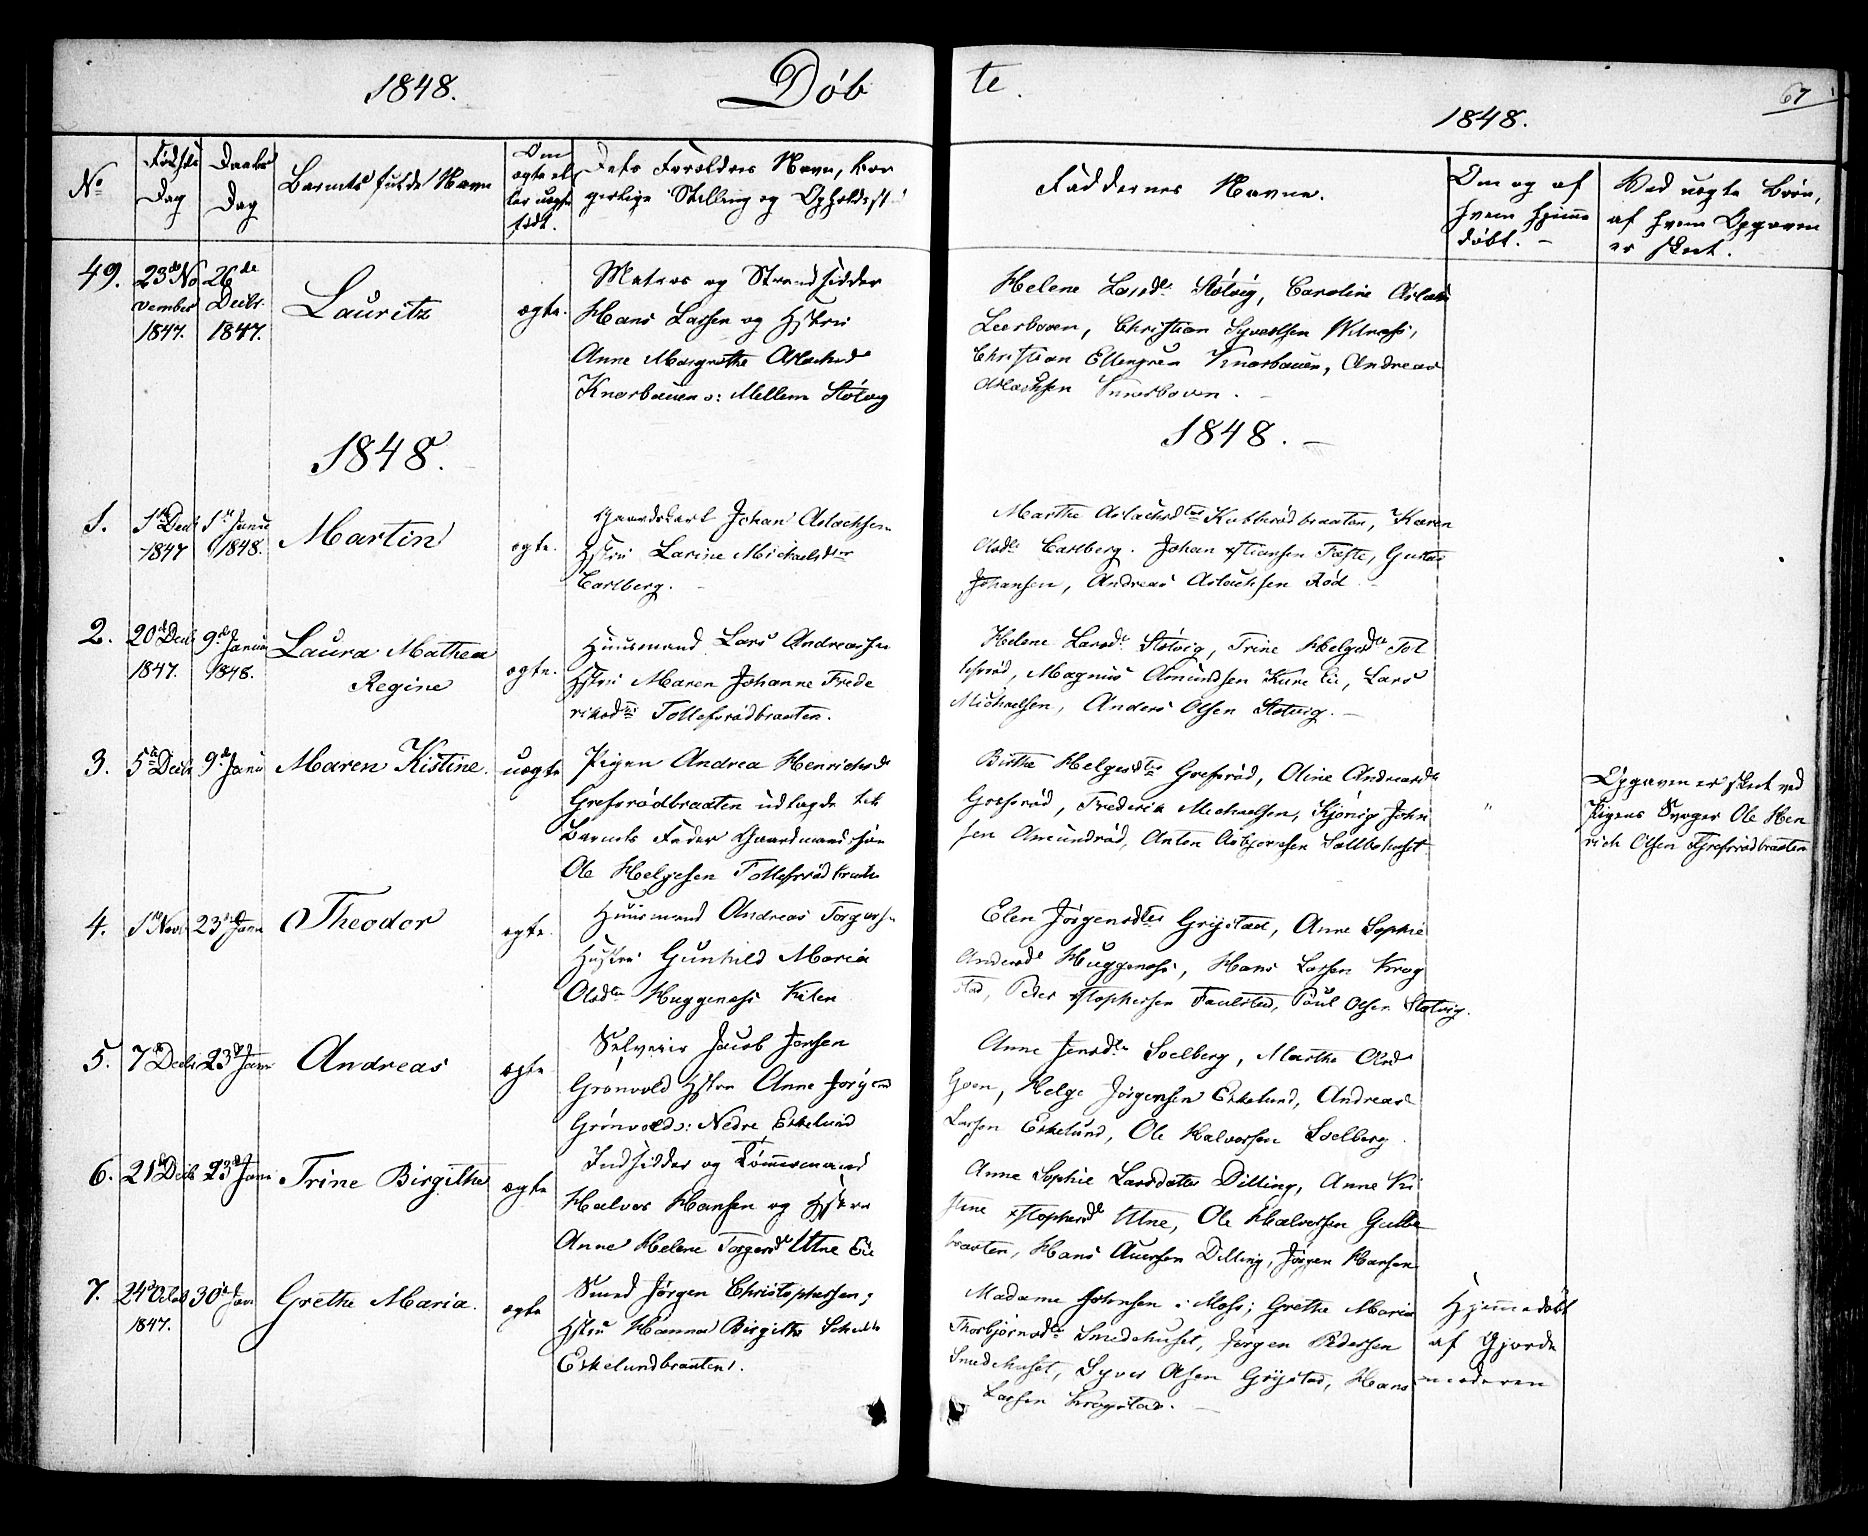 1848.
Døbte.
67
1848.
No
Fødsels Dag
Daabs Dag
Barnets fulde Navn
Om ægte eller uægte født.
Dets Forældres Navn, borgerlige Stilling og Opholdsst
Faddernes Navne.
Om og af hvem hjemmedøbt. -
Ved uægte Børn, af hvem Opgaven er skeet.
49.
23de November 1847.
26de Decbr. 1847.
Lauritz
ægte.
Matros og Strandsidder
Hans Larsen og Hstru
Anne Margrethe Aslachsd
Knarbauen o: Mellem Støtvig
Helene Larsdtr Støtvig, Caroline Aslach
Leerboven, Christian Syvertsen
Christian Ellengreen Knarbauen, Andreas
Aslachsen
1848.
1848. -
1.
1ste Decb 1847
1st Janu 1848.
Martin
ægte.
Gaardskarl Johan Aslachsen
Hstru Larine Michaelsdtr
Carlberg. -
Marthe Aslachsdter Kubberødbraaten, Karen
Olsdtr Carlberg. Johan Xstiansen Tofte, Gustav
Johansen, Andreas Aslachsen Rød -
2.
20de Decb 1847.
9de Janua 1848.
Laura Mathea
Regine
ægte.
Huusmand Lars Andreassen
Hstru Maren Johanne Frede
riksdtr Tollefsrødbraaten.
Helene Larsdtr Støtvig, Trine Helgesdtr Tol
lefsrød, Magnus Amundsen Kure Eie, Lars
Michaelsen, Anders Olsen Støtvig. -
3.
5te Decb
9de Janu
Maren Kistine.
uægte
Pigen Andrea Henrichsdr
Grefsrødbraaten udlagde til
Barnets Fader Gaardmandssøn
Ole Helgesen Tollefsrødbraaten
Birthe Helgesdtr Grefsrød, Oline Andreasdtr
Grefsrød, Frederik Michaelsen, Kjønig John
sen Amundrød, Anton Asbjørnsen
"
Opgaven er skeet ved
Pigens Svoger Ole Hen
rich Olsen Grefsrødbraaten
4.
1ste Novb
23de Janu
Theodor
ægte.
Huusmand Andreas Torgersn
Hustru Gunhild Maria
Olsdtr Huggenæss Kilen
Elen Jørgensdter Gryistad, Anne Sophie
Andersdtr Huggenæss, Hans Larsen Krog
stad, Peder Xstophersen Faulstad, Poul Olsen Støtvig.
5.
7de Decb
23de Janu
Andreas
ægte
Selveier Jacob Jensen
Grønvold Hstru Anne Jørgensd
Grønvold o: Nedre Eskelund
Anne Jensdtr Soelberg, Marthe Olsd
Goen, Helge Jørgensen Eskelund, Andreas
Larsen Eskelund, Ole Halvorsen Soelberg.
6.
21de Decb
23de Janu
Trine Birgithe
ægte
Indsidder og Tømmermand
Halvor Hansen og Hstru
Anne Helene Torgersdtr Utne Eie
Anne Sophie Larsdatter Dilling, Anne Ki
stine Xstophersdtr Utne, Ole Halvorsen Gulbe
braaten, Hans Auersen Dilling, Jørgen Hansen
7.
24de Octob 1847.
30te Jan
Grethe Maria.
ægte
Smed Jørgen Christophersen;
Hstru Hanna Birgithe
Eskelundbraaten.
Madame Johnsen i Moss; Grethe Maria
Thorbjørnsdtr Smedehuset, Jørgen Pedersen
Smedehuset, Syver Olsen Gryistad, Hans
Larsen Krogstad. -
Hjemmedøbt
af Gjorde
moderen